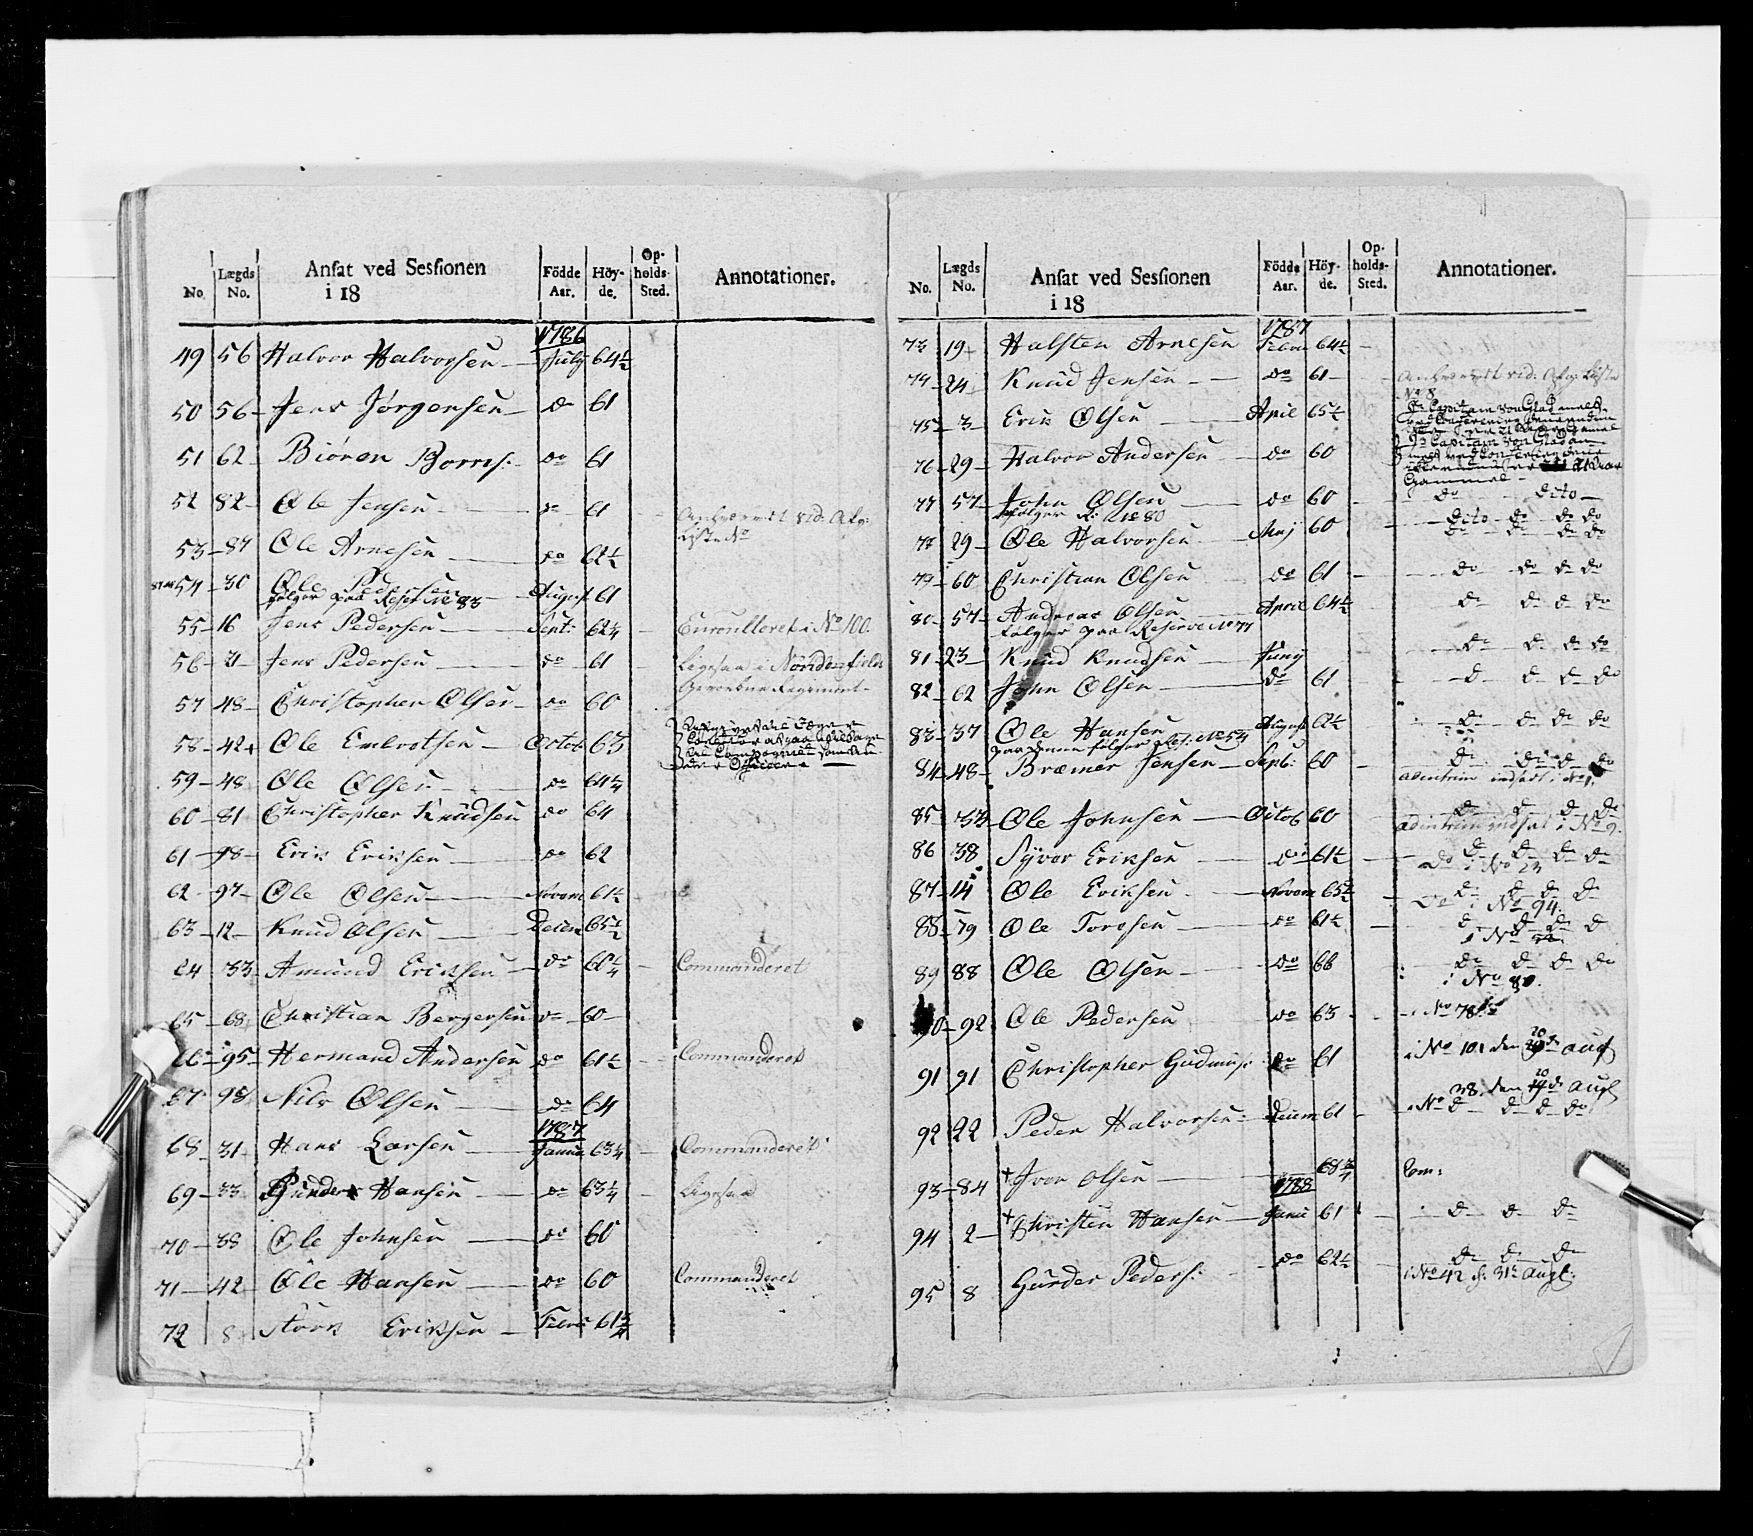 No. Lægds No. Ansat ved Sessionen i 18 Födde Aar. Höy-de. Op-holds-Sted. Annotationer.
1786
49 56 Halvor Halvorsen July 64½
50 56 Jens Jørgensen do 61
51 62 Biören Borres: do 61
52 82 Ole Jensen do 61
53 87 Ole Arnesen do 62½
54 30 Ole Pedersen August 61
følger paa Reserve No 83
55 16 Jens Pedersen Sept: 62¼ Enroulleret i No 100.
56 31 Jens Pedersen do 61 Ligesaa i Nordenfields
Gevorbne Regiment
57 48 Christopher Olsen do 60
58 42 Ole Embrotsen Octob 63
59 48 Ole Olsen do 64¼
60 81 Christopher Knudsen do 64
61 98 Erik Eriksen do 62
62 97 Ole Olsen Novem 61½
63 12 Knud Olsen Decem 65½
64 33 Amund Eriksen do 60¼ Commanderet
65 68 Christian Bergersen do 60
66 95 Hermand Andersen do 61½ Commanderet
67 98 Nils Olsen do 64
1787
68 31 Hans Larsen Janua 63¼ Commanderet
69 33 Gunder Hansen do 63¼ Ligesaa
70 38 Ole Johnsen do 60
71 42 Ole Hansen do 60 Commanderet
72 8 Eriksen Febru 61¾
No. Lægds No. Ansat ved Sessionen i 18 Födde Aar. Höy-de. Op-holds-Sted. Annotationer.
1787
73 19 Halsten Arnesen Febru 64½
74 24 Knud Jensen do 61
No 8
75 3 Erik Olsen April 65½
76 29 Halvor Andersen do 60
Gammel
77 57 John Olsen do 60 do dito
følger R: No 80
78 29 Ole Halvorsen Maj 60 dito do do do
do do do do
79 60 Christian Olsen do 61 do do do do
80 57 Andreas Olsen April 64½ do do do do
følger paa Reserve No 77
81 23 Knud Knudsen Juny do do do do
82 62 John Olsen do 61 do do do do
83 37 Ole Hansen August 62½ do do do do
paa denne følger Res: No 54
84 48 Bræmer Jensen Septb: 60 do do do do
85 33 Ole Johnsen Octob 60 do do do do
i No 9.
86 38 Syver Eriksen do 61½ do do do do
do i No 23
87 14 Ole Eriksen Novem 65½ do do do do
do i No 94.
88 79 Ole Toresen do 61½ do do do do
i No
89 88 Ole Olsen do 66 do do do do
i No 80.
90 92 Ole Pedersen do 63 i No 78
91 91 Christopher Gudmus: do 61 i No 101 den 20de Aug
92 22 Peder Halvorsen Decem 61 i No 38. den 20de Aug
do do do do
93 84 † Iver Olsen 68¾ Com:
1788
94 2 † Christen Hansen Janu 61 do do do
95 8 Gunder Peders: do 62½ do do do
i No 42 d: 31te Augt: